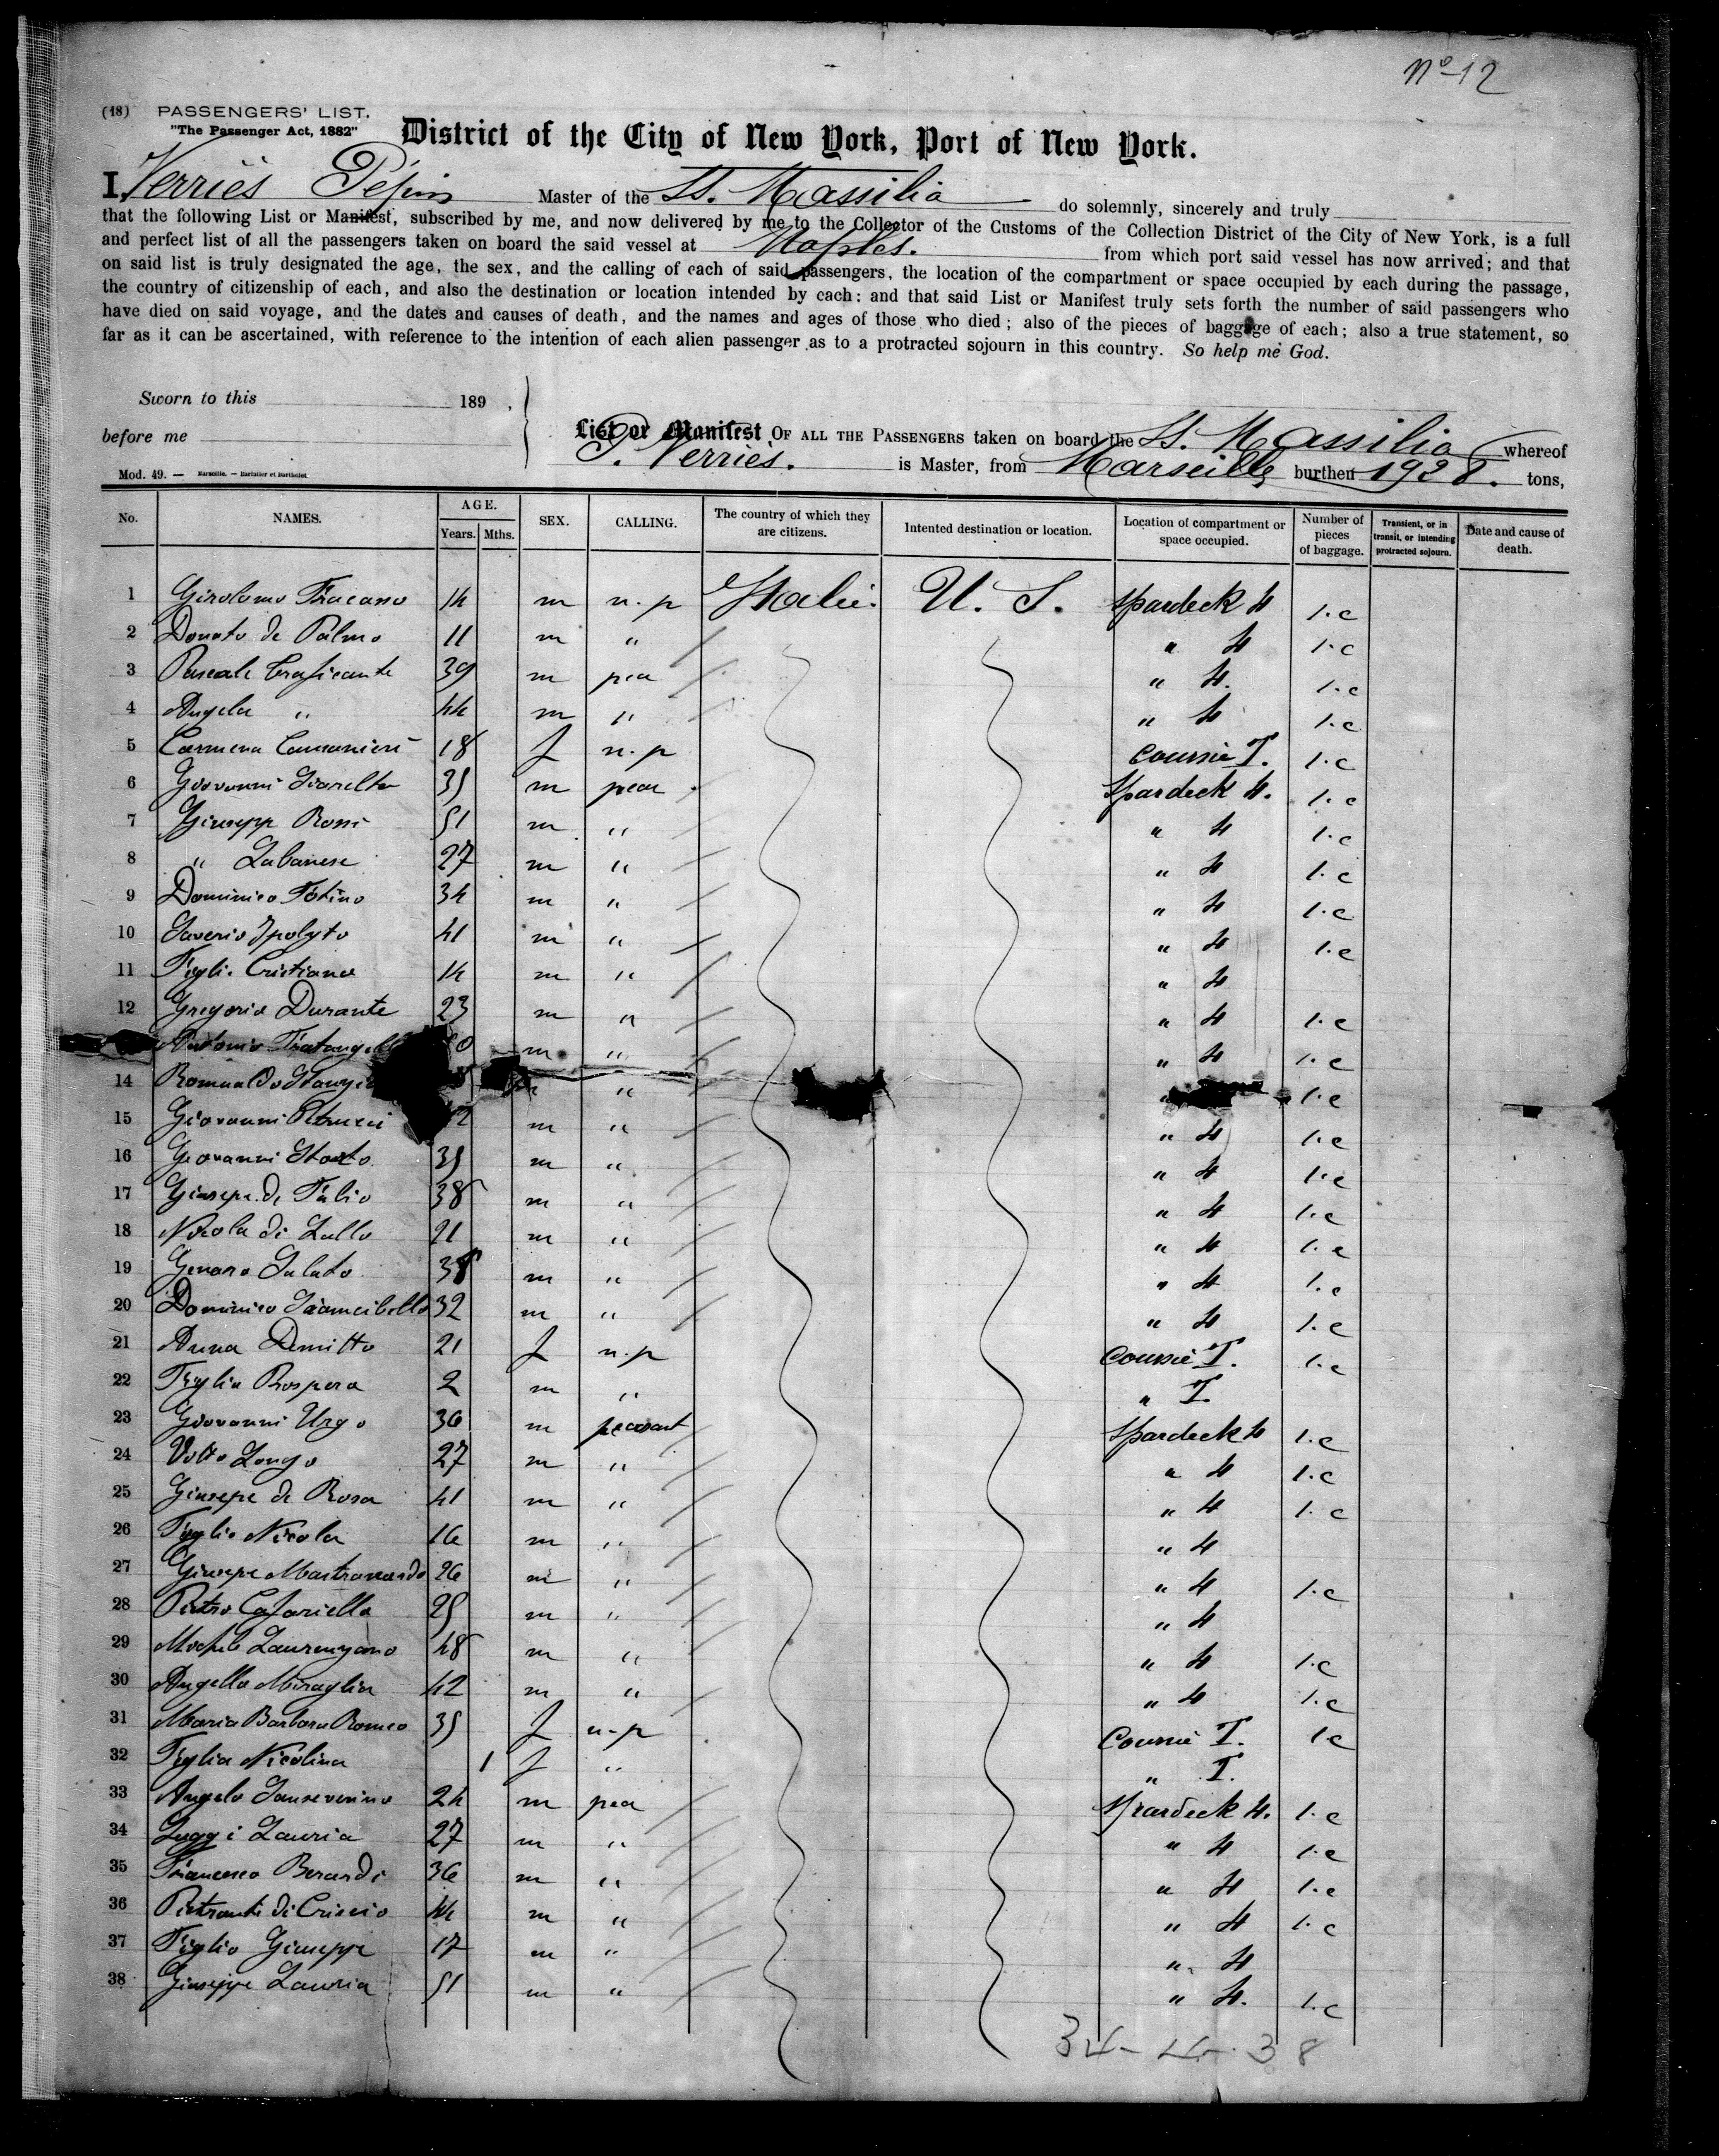 nº 12
(18) PASSENGERS' LIST.
"The Passenger Act, 1882"
District of the City of New York, Port of New York.
I, Verries Pépin Master of the SS. Massilia do solemnly, sincerely and truly
that the following List or Manifest, subscribed by me, and now delivered by me to the Collector of the Customs of the Collection District of the City of New York, is a full
and perfect list of all the passengers taken on board the said vessel at Naples. from which port said vessel has now arrived; and that
on said list is truly designated the age, the sex, and the calling of each of said passengers, the location of the compartment or space occupied by each during the passage,
the country of citizenship of each, and also the destination or location intended by each: and that said List or Manifest truly sets forth the number of said passengers who
have died on said voyage, and the dates and causes of death, and the names and ages of those who died; also of the pieces of baggage of each; also a true statement, so
far as it can be ascertained, with reference to the intention of each alien passenger as to a protracted sojourn in this country. So help me God.
Sworn to this 189 ,
before me
List or Manifest OF ALL THE PASSENGERS taken on board the SS. Massilia whereof
P. Verries. is Master, from Marseille burthen 1928. tons,
Mod. 49. — Marseille. — Barlatier et Barthelet.
No. NAMES. AGE. Years. Mths. SEX. CALLING. The country of which they are citizens. Intented destination or location. Location of compartment or space occupied. Number of pieces of baggage. Transient, or in transit, or intending protracted sojourn. Date and cause of death.
1 Girolomo Fracasso 14 m n.p Italie. U. S. Spardeck 4 1.c
2 Donato de Palmo 11 m " " 4 1.c
3 Pascale Traficante 39 m pea " 4. 1.c
4 Angela " 44 m " " 4 1.c
5 Carmena 18 f n.p Coursie T. 1.c
6 Giovanni 35 m pea Spardeck 4. 1.c
7 Giusepp Rossi 51 m " " 4 1.c
8 " Labanese 27 m " " 4 1.c
9 Dominico Totino 34 m " " 4 1.c
10 Saverio Ipolyto 41 m " " 4 1.c
11 Figli. Cristiano 14 m " " 4
12 Gregorio Durante 23 m " " 4 1.c
Antonio m " " 4 1.c
14 Romualdo " " 1.c
15 Giovanni Petrucci 2 m " " 4 1.c
16 Giovanni Storto 35 m " " 4 1.c
17 Giusepe de Falio 38 m " " 4 1.c
18 Nicola di Lallo 21 m " " 4 1.c
19 Genaro Salato 38 m " " 4 1.c
20 Dominico 32 m " " 4 1.c
21 Anna Demitto 21 f n.p Coursie T. 1.c
22 Figlia Prospera 2 m " " T.
23 Giovanni Urgo 36 m peasant Spardeck 4 1.c
24 Vitto Longo 27 m " " 4 1.c
25 Giusepe de Rosa 41 m " " 4 1.c
26 Figlio Nicola 16 m " " 4
27 Giusepe Mastronardo 26 m " " 4 1.c
28 Pietro Cafariello 25 m " " 4
29 Michele Laurenzano 48 m " " 4 1.c
30 Angello Miraglia 42 m " " 4 1.c
31 Maria Barbara Romeo 35 f n.p Coursie T. 1c
32 Figlia Nicolina 1 f " " T.
33 Angelo Sanseverino 24 m pea Spardeck 4. 1.c
34 Luggi Lauria 27 m " " 4 1.c
35 Francesco Berardi 36 m " " 4 1.c
36 Pietranti di Criscio 44 m " " 4 1.c
37 Figlio Giuseppe 17 m " " 4
38 Giuseppe Lauria 51 m " " 4. 1.c
34 - 4 - 38